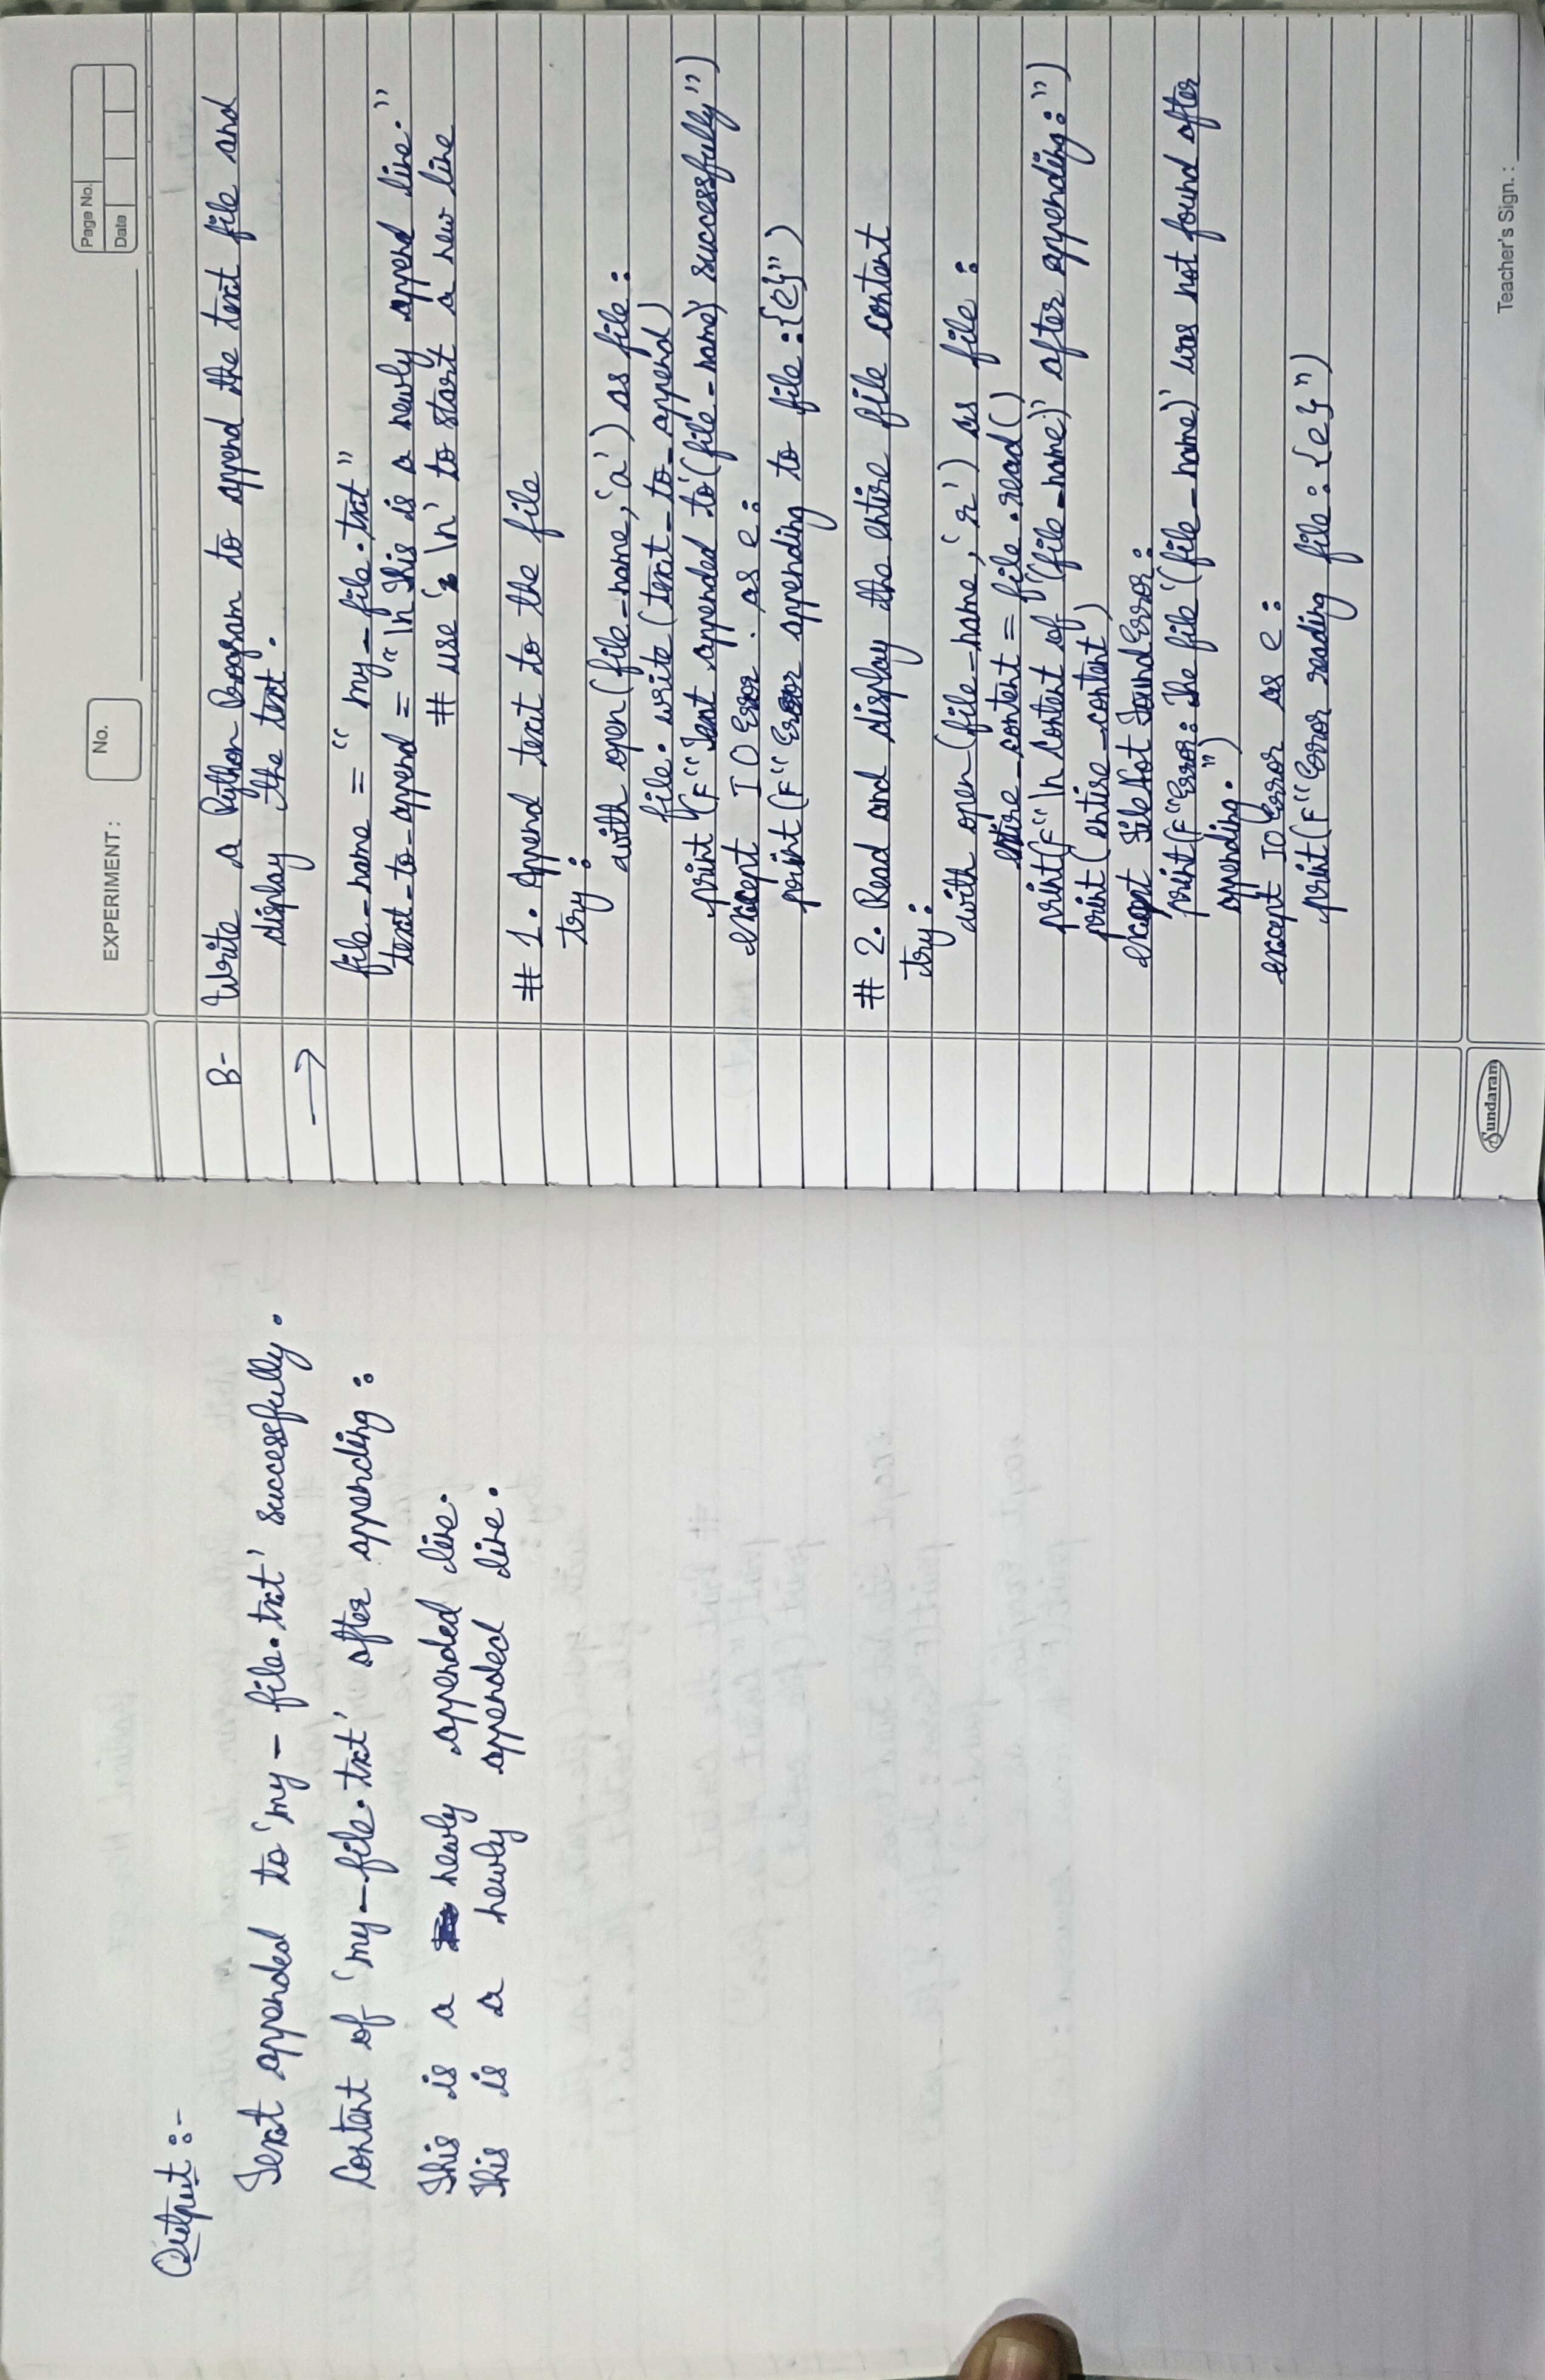 Output :-
Text appended to 'my_file.txt' successfully.
Content of 'my_file.txt' after appending :
This is a newly appended line.
This is a newly appended line.
EXPERIMENT :
No.
Page No.
Date
B- Write a Python Program to append the text file and
display the text.
→
file_name = "my_file.txt"
text_to_append = "\n This is a newly append line."
# use '\n' to start a new line
# 1. Append text to the file
try :
with open(file_name, 'a') as file :
file.write(text_to_append)
print (F"Text appended to '(file_name)' successfully")
except IO Error . as e :
print (F"Error appending to file :{e}")
# 2. Read and display the entire file content
try :
with open(file_name, 'r') as file :
entire_content = file.read()
print(F"\n Content of '(file_name)' after appending : ")
print (entire_content)
except FileNot FoundError :
print(F"Error: The file '(file_name)' was not found after
appending.")
except IO Error as e :
print(F"Error reading file : {e}")
Sundaram
Teacher's Sign. :